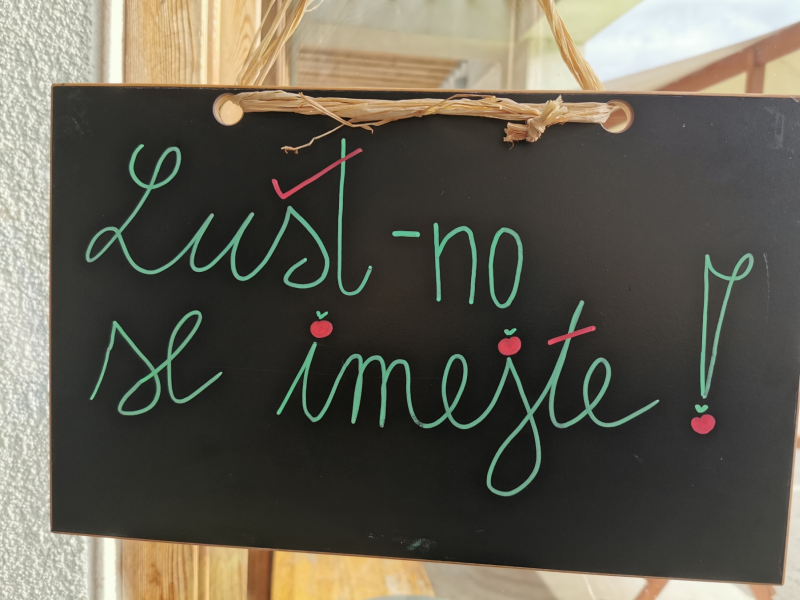 Lušt-no
se imejte!